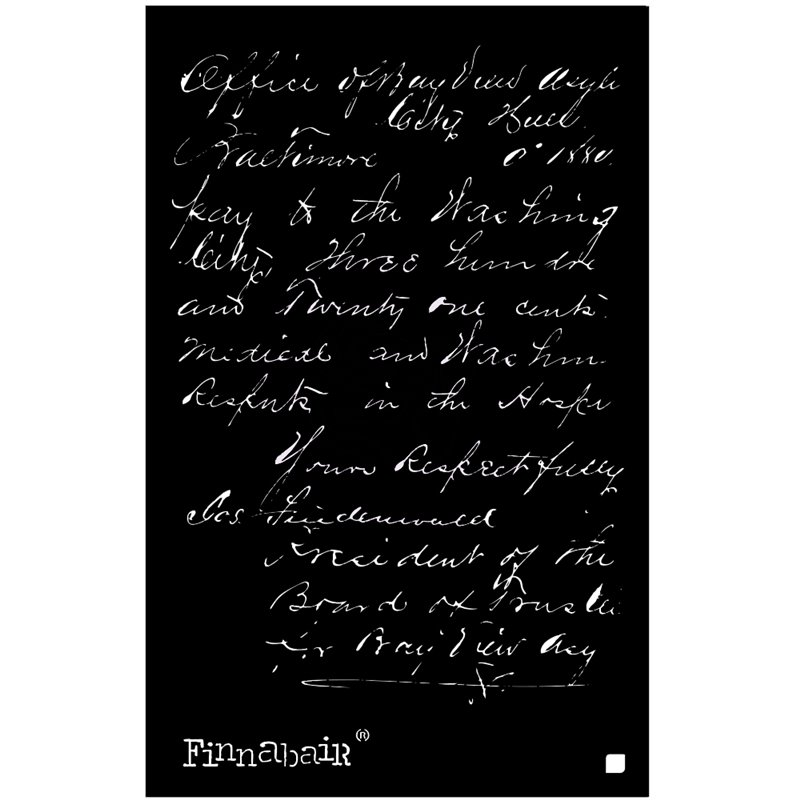 Office of Bay View Asyl
City Hall
Baltimore 188
pay to the Washing
City, Three hundre
and Twenty one cents
Medical and Washin
Respects in the Hospi
Yours Respectfully
Jos. Lindenwald
President of the
Board of Truste
for Bay View Asy
Finnabair (R)